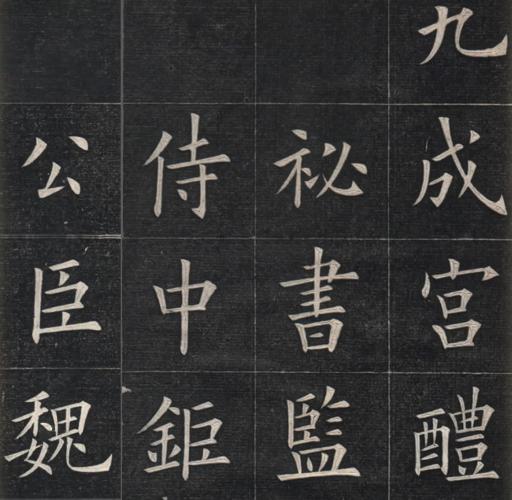 九成宮醴
祕書監
侍中鉅
公臣魏